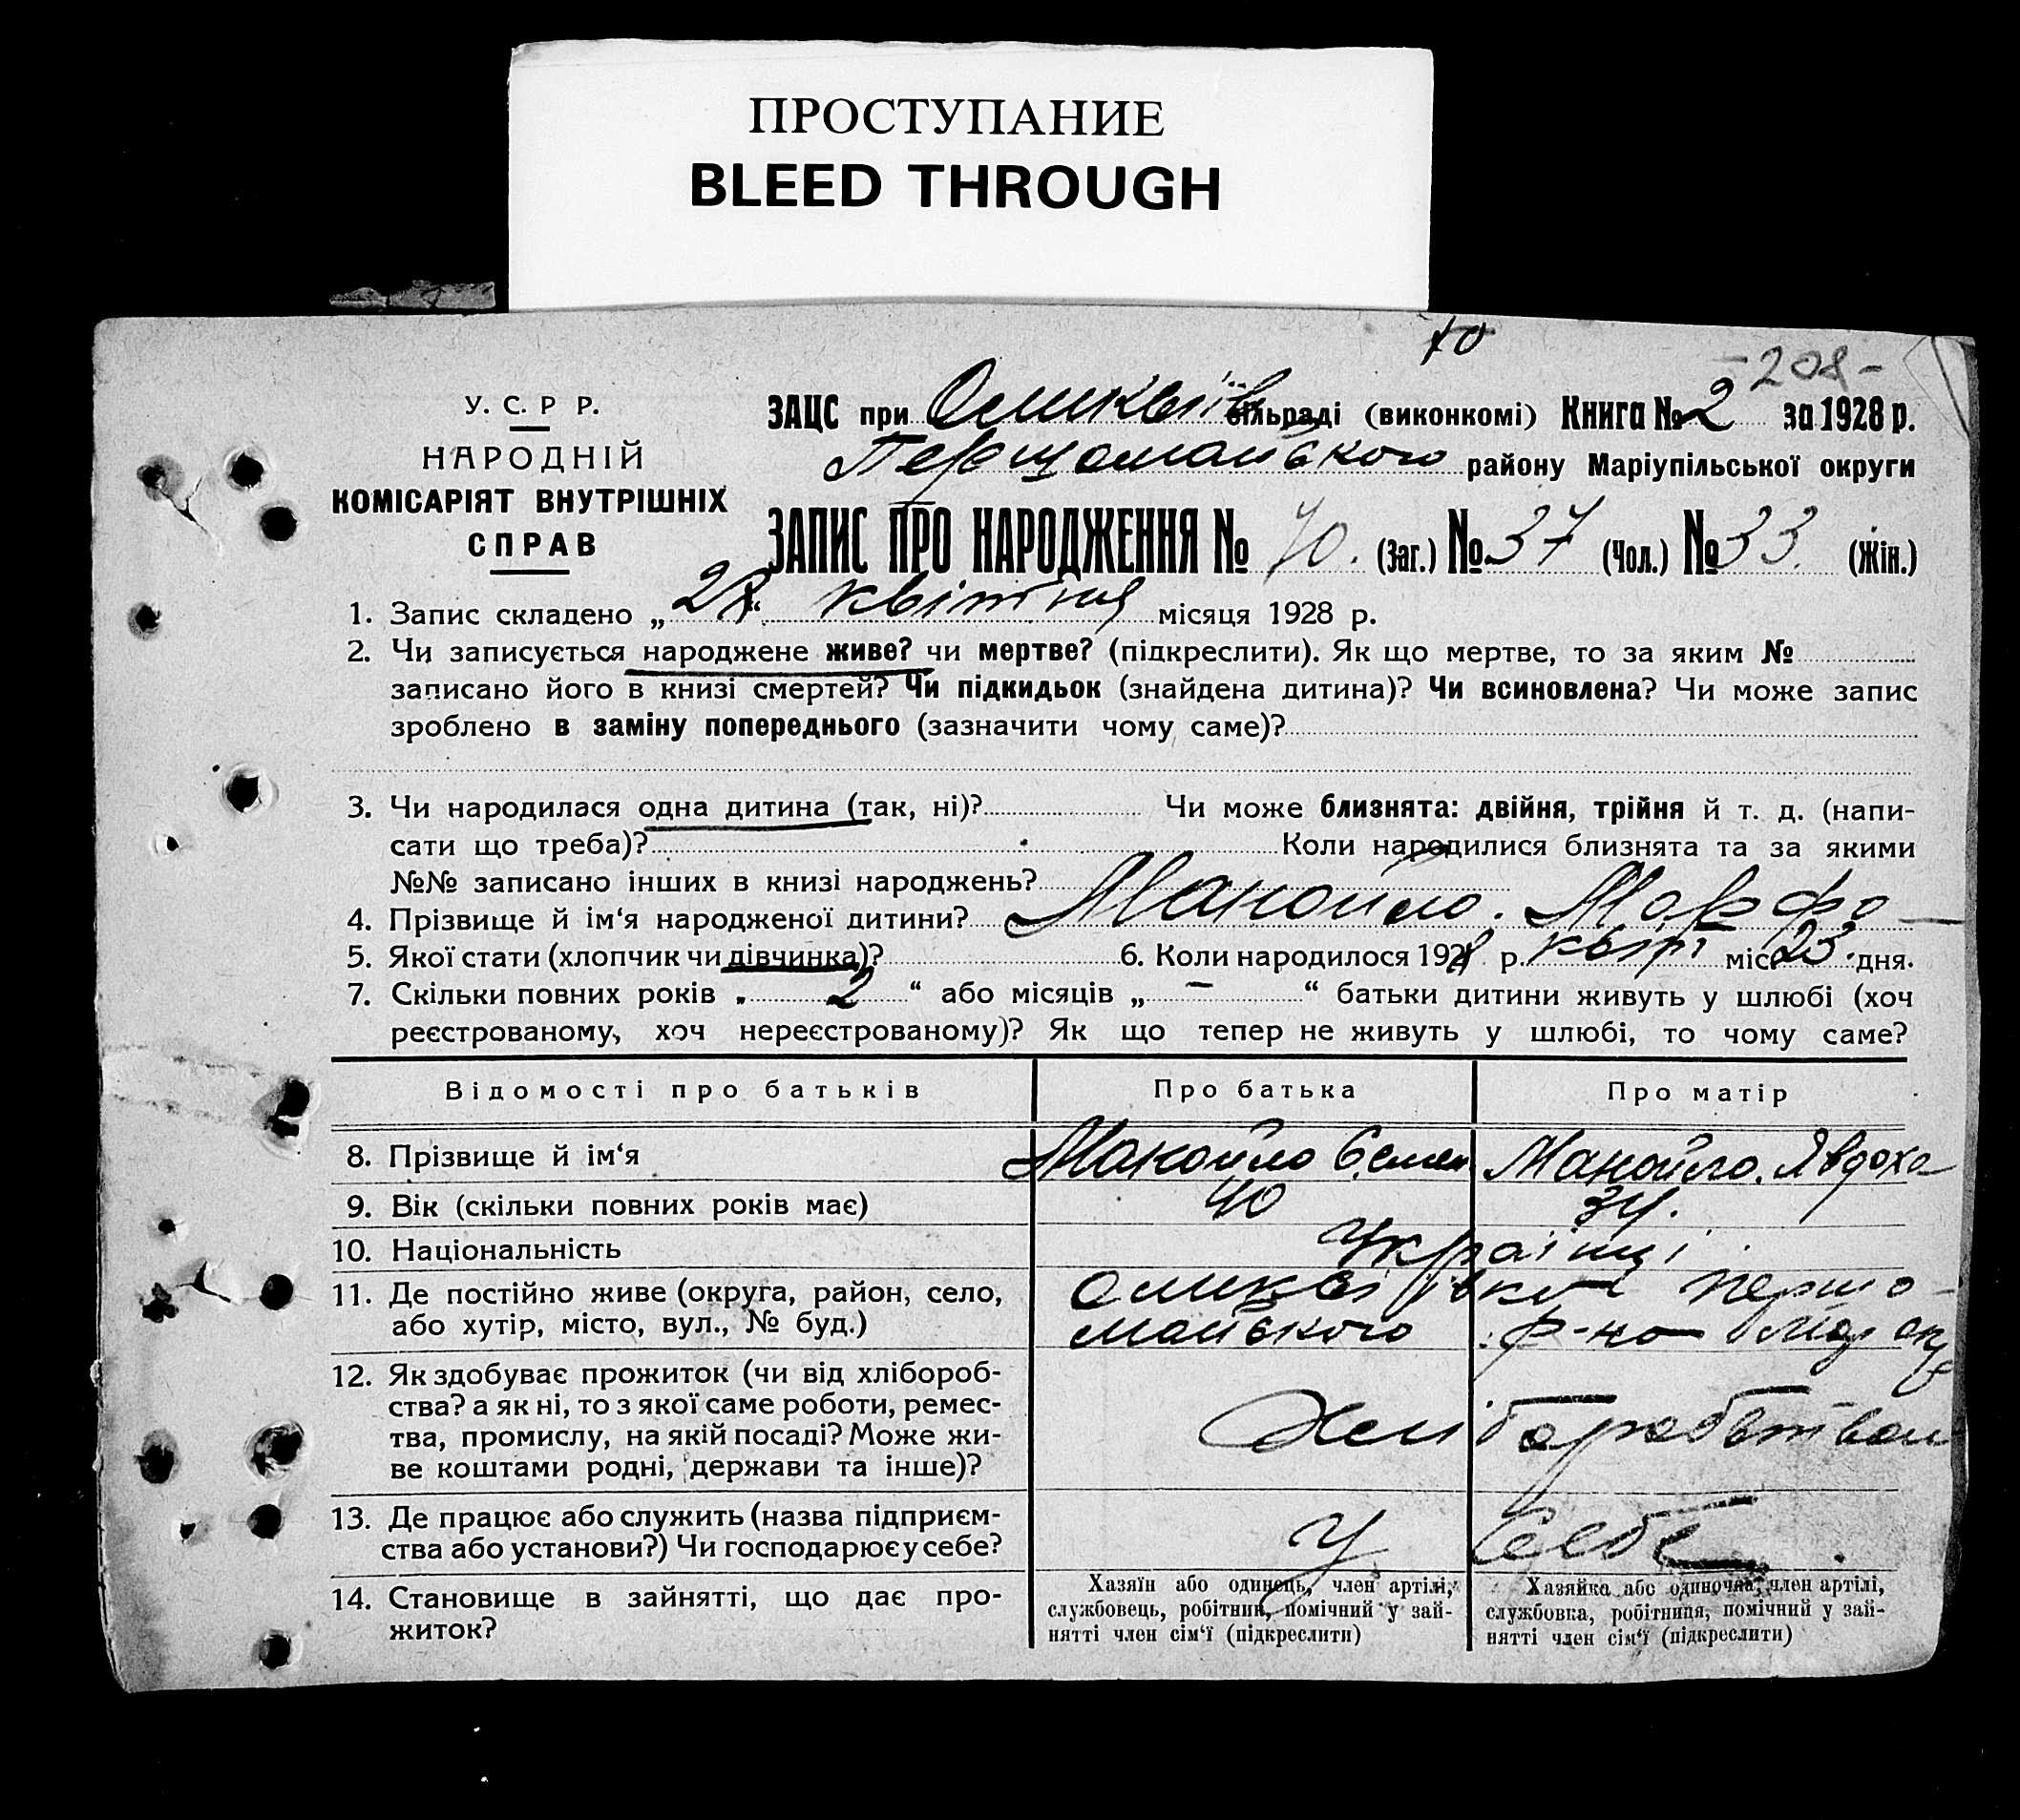 ПРОСТУПАНИЕ
BLEED THROUGH
70
-208-
У. С. Р Р.
НАРОДНІЙ
КОМІСАРІЯТ ВНУТРІШНІХ
СПРАВ
ЗАЦС при сільраді (виконкомі) Книга № 2 за 1928 р.
Першомайського району Маріупільської округи
ЗАПИС ПРО НАРОДЖЕННЯ № 70. (Заг.) № 37 (Чол.) № 33. (Жін.)
1. Запис складено „ “ квітня місяця 1928 р.
2. Чи записується народжене живе? чи мертве? (підкреслити). Як що мертве, то за яким №
записано його в книзі смертей? Чи підкидьок (знайдена дитина)? Чи всиновлена? Чи може запис
зроблено в заміну попереднього (зазначити чому саме)?
3. Чи народилася одна дитина (так, ні)? Чи може близнята: двійня, трійня й т. д. (напи-
сати що треба)? Коли народилися близнята та за якими
№№ записано інших в книзі народжень?
4. Прізвище й ім‘я народженої дитини? Манойло. Марфа
5. Якої стати (хлопчик чи дівчинка)? 6. Коли народилося 1928 р. квіт міс. 23 дня.
7. Скільки повних років „ 2 “ або місяців „ – “ батьки дитини живуть у шлюбі (хоч
реєстрованому, хоч нереєстрованому)? Як що тепер не живуть у шлюбі, то чому саме?
Відомості про батьків Про батька Про матір
8. Прізвище й ім‘я Манойло Семен Манойло. Явдоха
9. Вік (скільки повних років має) 40 34.
10. Національність Українці
11. Де постійно живе (округа, район, село, першо-
або хутір, місто, вул., № буд.) майського р-на Мар окр
12. Як здобуває прожиток (чи від хлібороб-
ства? а як ні, то з якої саме роботи, ремес-
тва, промислу, на якій посаді? Може жи-
ве коштами родні, держави та інше)? Хліборобством
13. Де працює або служить (назва підприєм-
ства або установи?) Чи господарює у себе? У себе.
14. Становище в зайнятті, що дає про-
житок?
Хазяїн або одинець, член артілі,
службовець, робітник, помічний у зай-
нятті член сім‘ї (підкреслити)
Хазяйка або одиночка, член артілі,
службовка, робітниця, помічний у зай-
нятті член сім‘ї (підкреслити)